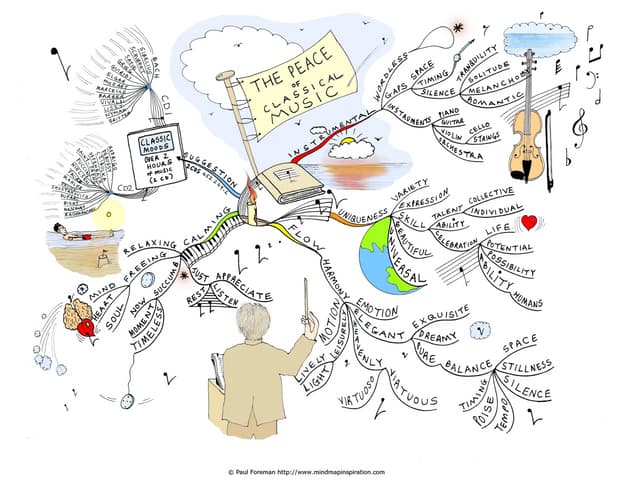 THE PEACE
OF
CLASSICAL
MUSIC
INSTRUMENTAL
WORDLESS
GAPS
SPACE
TIMING
SILENCE
TRANQUILITY
SOLITUDE
MELANCHOLY
ROMANTIC
INSTRUMENTS
PIANO
GUITAR
VIOLIN
CELLO
STRINGS
ORCHESTRA
UNIQUENESS
VARIETY
EXPRESSION
SKILL
TALENT
COLLECTIVE
ABILITY
INDIVIDUAL
CELEBRATION
LIFE
POTENTIAL
POSSIBILITY
ABILITY
HUMANS
BEAUTIFUL
UNIVERSAL
FLOW
HARMONY
MOTION
LEISURELY
LIVELY
LIGHT
EMOTION
ELEGANT
EXQUISITE
DREAMY
PURE
BALANCE
SPACE
STILLNESS
SILENCE
TIMING
POISE
TEMPO
HEAVENLY
VIRTUOSO
VIRTUOUS
CALMING
RELAXING
FREEING
MIND
HEART
SOUL
SUCCUMB
NOW
MOMENT
TIMELESS
JUST
REST
LISTEN
APPRECIATE
SUGGESTION
CLASSIC
MOODS
OVER 2
HOURS
OF MUSIC
(2 CD)
CD1
BACH
SIBELIUS
GRIEG
MOZART
VIVALDI
CD2
© Paul Foreman http://www.mindmapinspiration.com